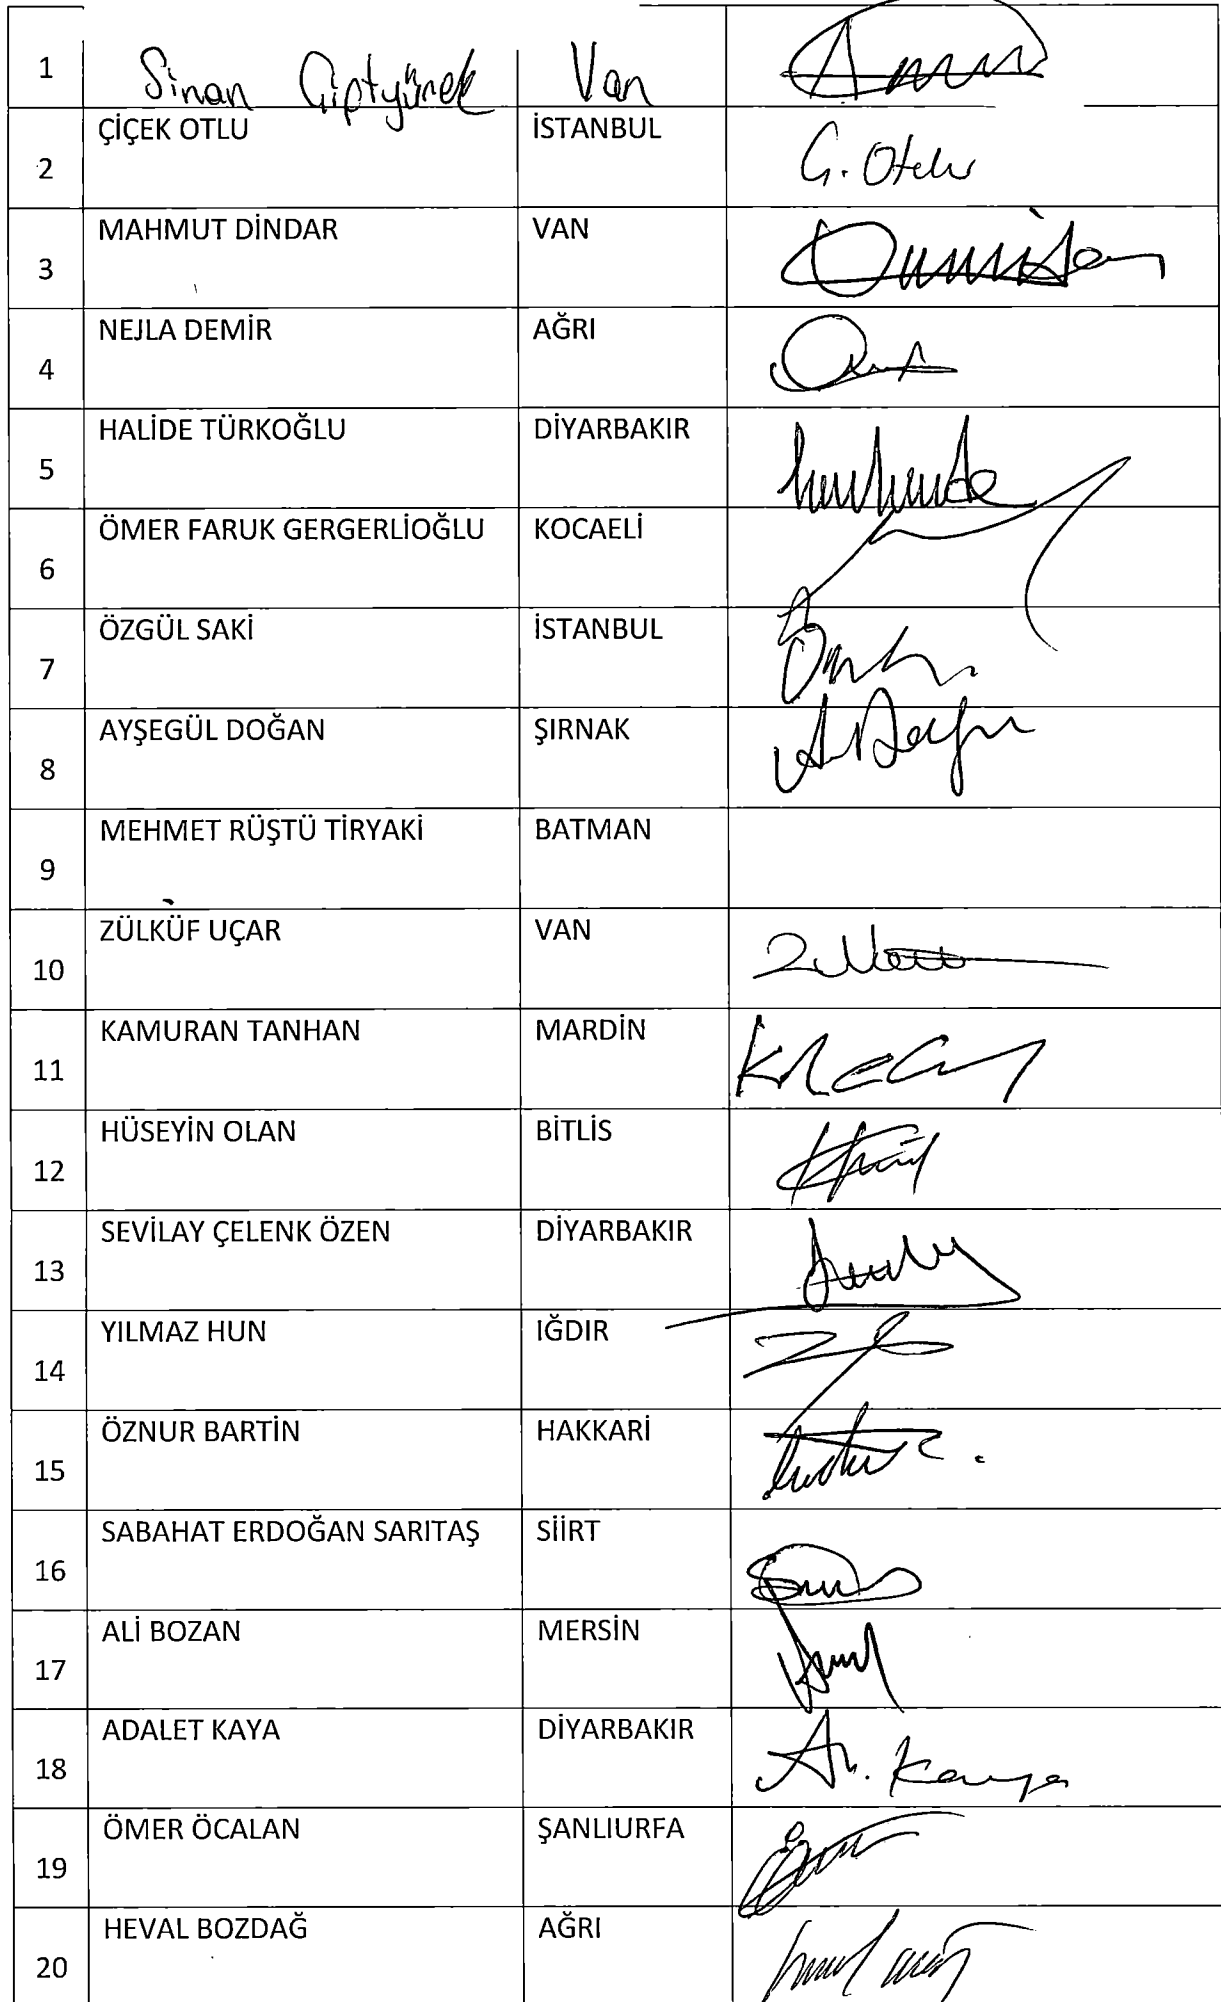 1 Sinan Çiftyürek Van
2 ÇİÇEK OTLU İSTANBUL Ç. Otlu
3 MAHMUT DİNDAR VAN
4 NEJLA DEMİR AĞRI
5 HALİDE TÜRKOĞLU DİYARBAKIR
6 ÖMER FARUK GERGERLİOĞLU KOCAELİ
7 ÖZGÜL SAKİ İSTANBUL
8 AYŞEGÜL DOĞAN ŞIRNAK
9 MEHMET RÜŞTÜ TİRYAKİ BATMAN
10 ZÜLKÜF UÇAR VAN
11 KAMURAN TANHAN MARDİN
12 HÜSEYİN OLAN BİTLİS
13 SEVİLAY ÇELENK ÖZEN DİYARBAKIR
14 YILMAZ HUN IĞDIR
15 ÖZNUR BARTİN HAKKARİ
16 SABAHAT ERDOĞAN SARITAŞ SİİRT
17 ALİ BOZAN MERSİN
18 ADALET KAYA DİYARBAKIR A. Kaya
19 ÖMER ÖCALAN ŞANLIURFA
20 HEVAL BOZDAĞ AĞRI